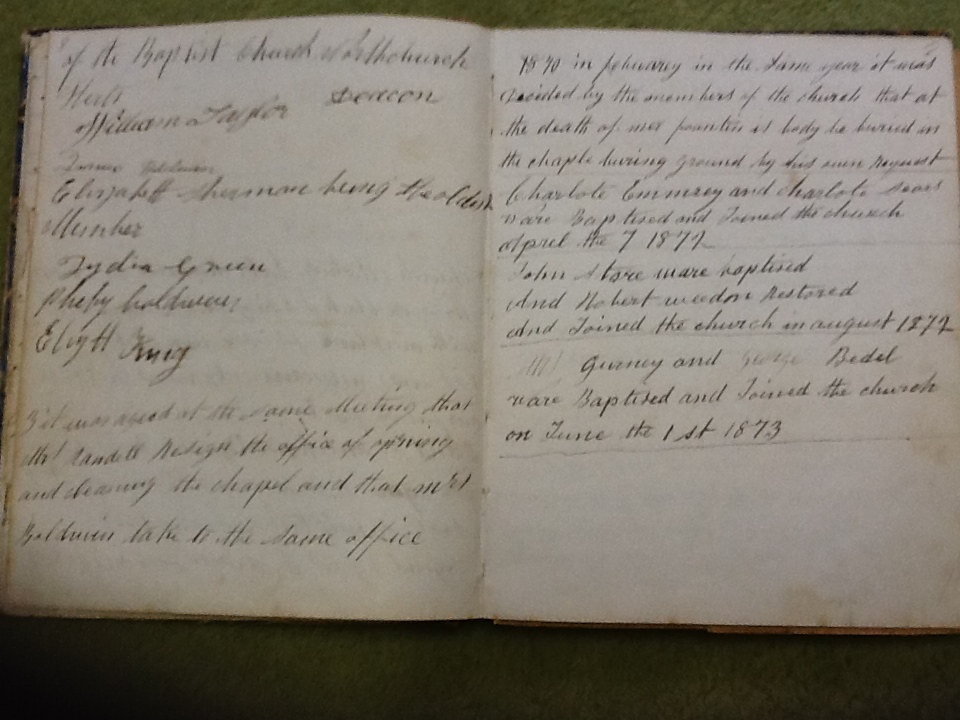 of the Baptist Church Northchurch
Herts
William Taylor Deacon
James Baldwin
Elizabeth Sherman being the oldest
Member
Lydia Green
Pheby Baldwin
King
3 it was agead at the same Meeting that
Randell Resign the office of opning
and cleaning the chapel and that mrs
Baldwin take to the same office
1870 in febuarey in the same year it was
decided by the members of the church that at
the death of mr is body be buried in
the chaple buring ground by his own request
Charlote Emmrey and charlote sears
ware Baptised and Joined the church
april the 7 1872
John ware baptised
And Robert weedon Restored
And Joined the church in august 1872
Gurney and George Bedel
ware Baptised and Joined the church
on June the 1 st 1873